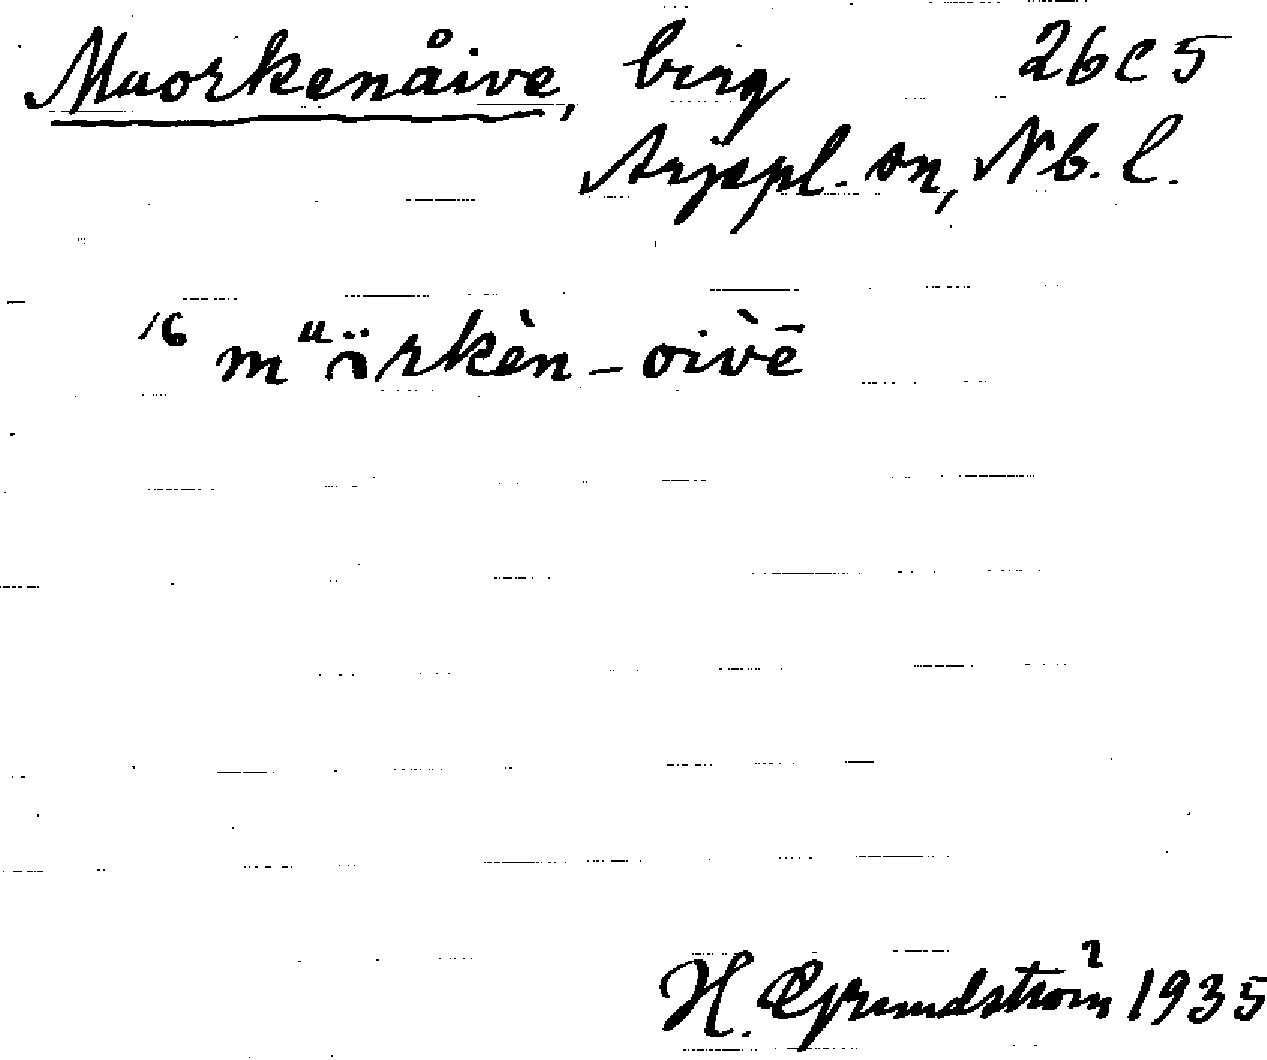 Muorkenåive, berg 26C5
Arjepl. sn, Nb. l.
16 mᵘörkèn-oivē
H. Grundström 1935